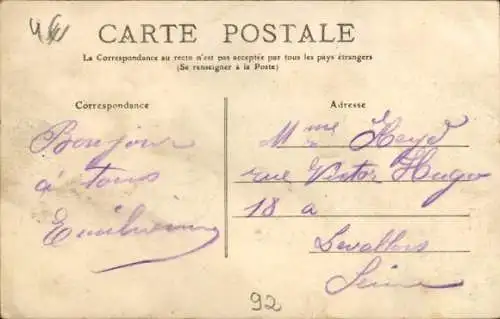 CARTE POSTALE
La Correspondance au recto n'est pas acceptée par tous les pays étrangers
(Se renseigner à la Poste)
Correspondance
Adresse
Bonjour
à tous
Mme Heyd
rue Victor Hugo
18 a
Levallois
Seine
92